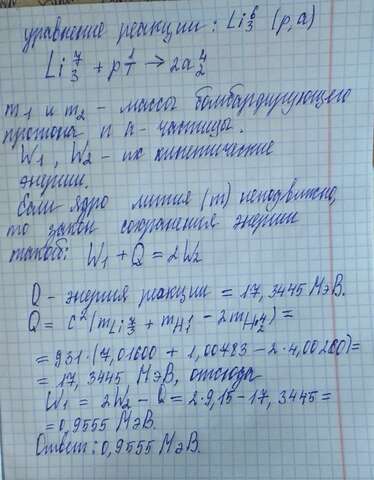 уравнение реакции: Li ⁶₃ (p, a)
Li ⁷₃ + p ¹₁ → 2a ⁴₂
m₁ и m₂ - массы бомбардирующего
протона и a - частицы.
W₁, W₂ - их кинетические
энергии.
Если ядро лития (m) неподвижно,
то закон сохранения энергии
таков: W₁ + Q = 2W₂
Q - энергия реакции = 17,3445 МэВ.
Q = c² (m Li ⁷₃ + m H ¹₁ - 2m H ⁴₂) =
= 931 · (7,01600 + 1,00783 - 2 · 4,00260) =
= 17,3445 МэВ, отсюда
W₁ = 2W₂ - Q = 2 · 9,15 - 17,3445 =
= 0,9555 МэВ.
Ответ: 0,9555 МэВ.